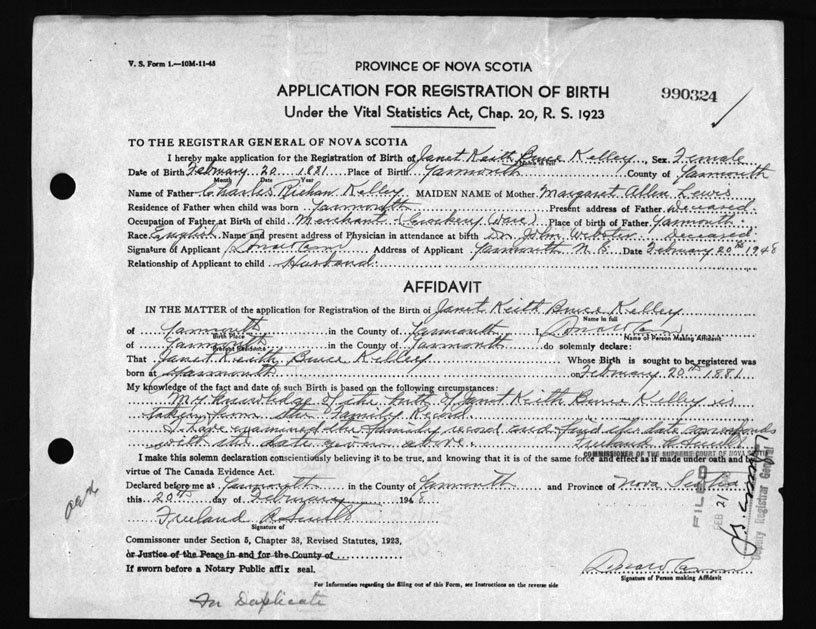 V. S. Form 1.—10M-11-45
PROVINCE OF NOVA SCOTIA
APPLICATION FOR REGISTRATION OF BIRTH
990324
Under the Vital Statistics Act, Chap. 20, R. S. 1923
TO THE REGISTRAR GENERAL OF NOVA SCOTIA
I hereby make application for the Registration of Birth of Janet Keith Bruce Kelley, Sex Female
Name in full
Date of Birth February 20 1881 Place of Birth Yarmouth County of Yarmouth
Month Date Year
Name of Father Charles Kelley MAIDEN NAME of Mother Margaret Allen Lewis
Residence of Father when child was born Yarmouth Present address of Father deceased
Occupation of Father at Birth of child Merchant (Crockery Ware) Place of birth of Father Yarmouth
Race English Name and present address of Physician in attendance at birth Dr. John Webster Deceased
Signature of Applicant Address of Applicant Yarmouth N.S. Date February 20th 1948
Relationship of Applicant to child Husband
AFFIDAVIT
IN THE MATTER of the application for Registration of the Birth of Janet Keith Bruce Kelley
Name in full
of Yarmouth in the County of Yarmouth I
Birth Place Name of Person Making Affidavit
of Yarmouth in the County of Yarmouth do solemnly declare:
Present Residence
That Janet Keith Bruce Kelley Whose Birth is sought to be registered was
born at Yarmouth on February 20th 1881
My knowledge of the fact and date of such Birth is based on the following circumstances:
My knowledge of the birth of Janet Keith Bruce Kelley is
taken from the Family Record
I have examined the family record and find the date corresponds
with the date given above. Freeland
COMMISSIONER OF THE SUPREME COURT OF NOVA SCOTIA
I make this solemn declaration conscientiously believing it to be true, and knowing that it is of the same force and effect as if made under oath and by
virtue of The Canada Evidence Act.
Declared before me at Yarmouth in the County of Yarmouth and Province of Nova Scotia
this 20th day of February 1948
Freeland
Signature of
FILED
FEB 21
Deputy Registrar General
Commissioner under Section 5, Chapter 38, Revised Statutes, 1923,
or Justice of the Peace in and for the County of
If sworn before a Notary Public affix seal.
Signature of Person making Affidavit
For Information regarding the filling out of this Form, see Instructions on the reverse side
In Duplicate